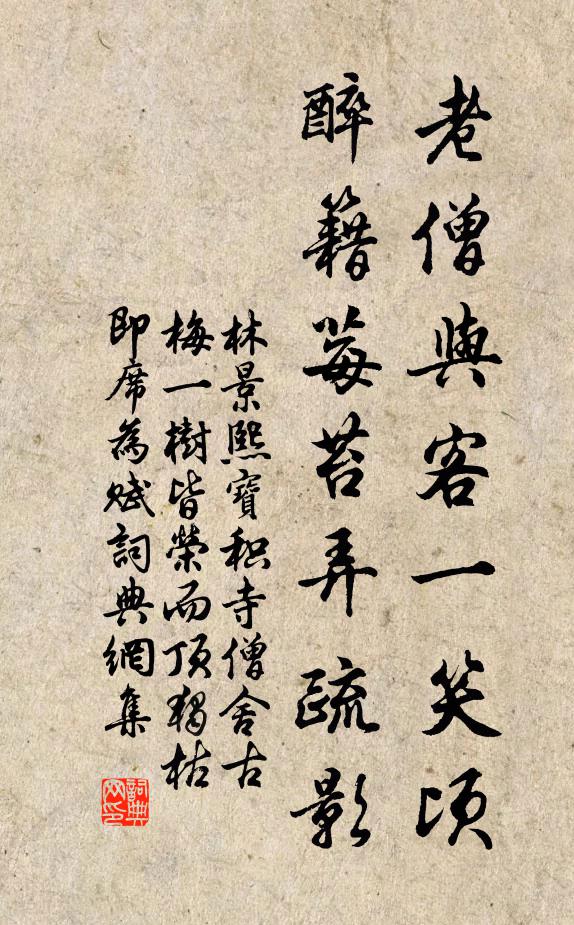 老僧與客一笑頃
醉籍莓苔弄疏影
林景熙寶积寺僧舍古
梅一樹皆榮而頂獨枯
即席為赋詞典網集
詞典网印